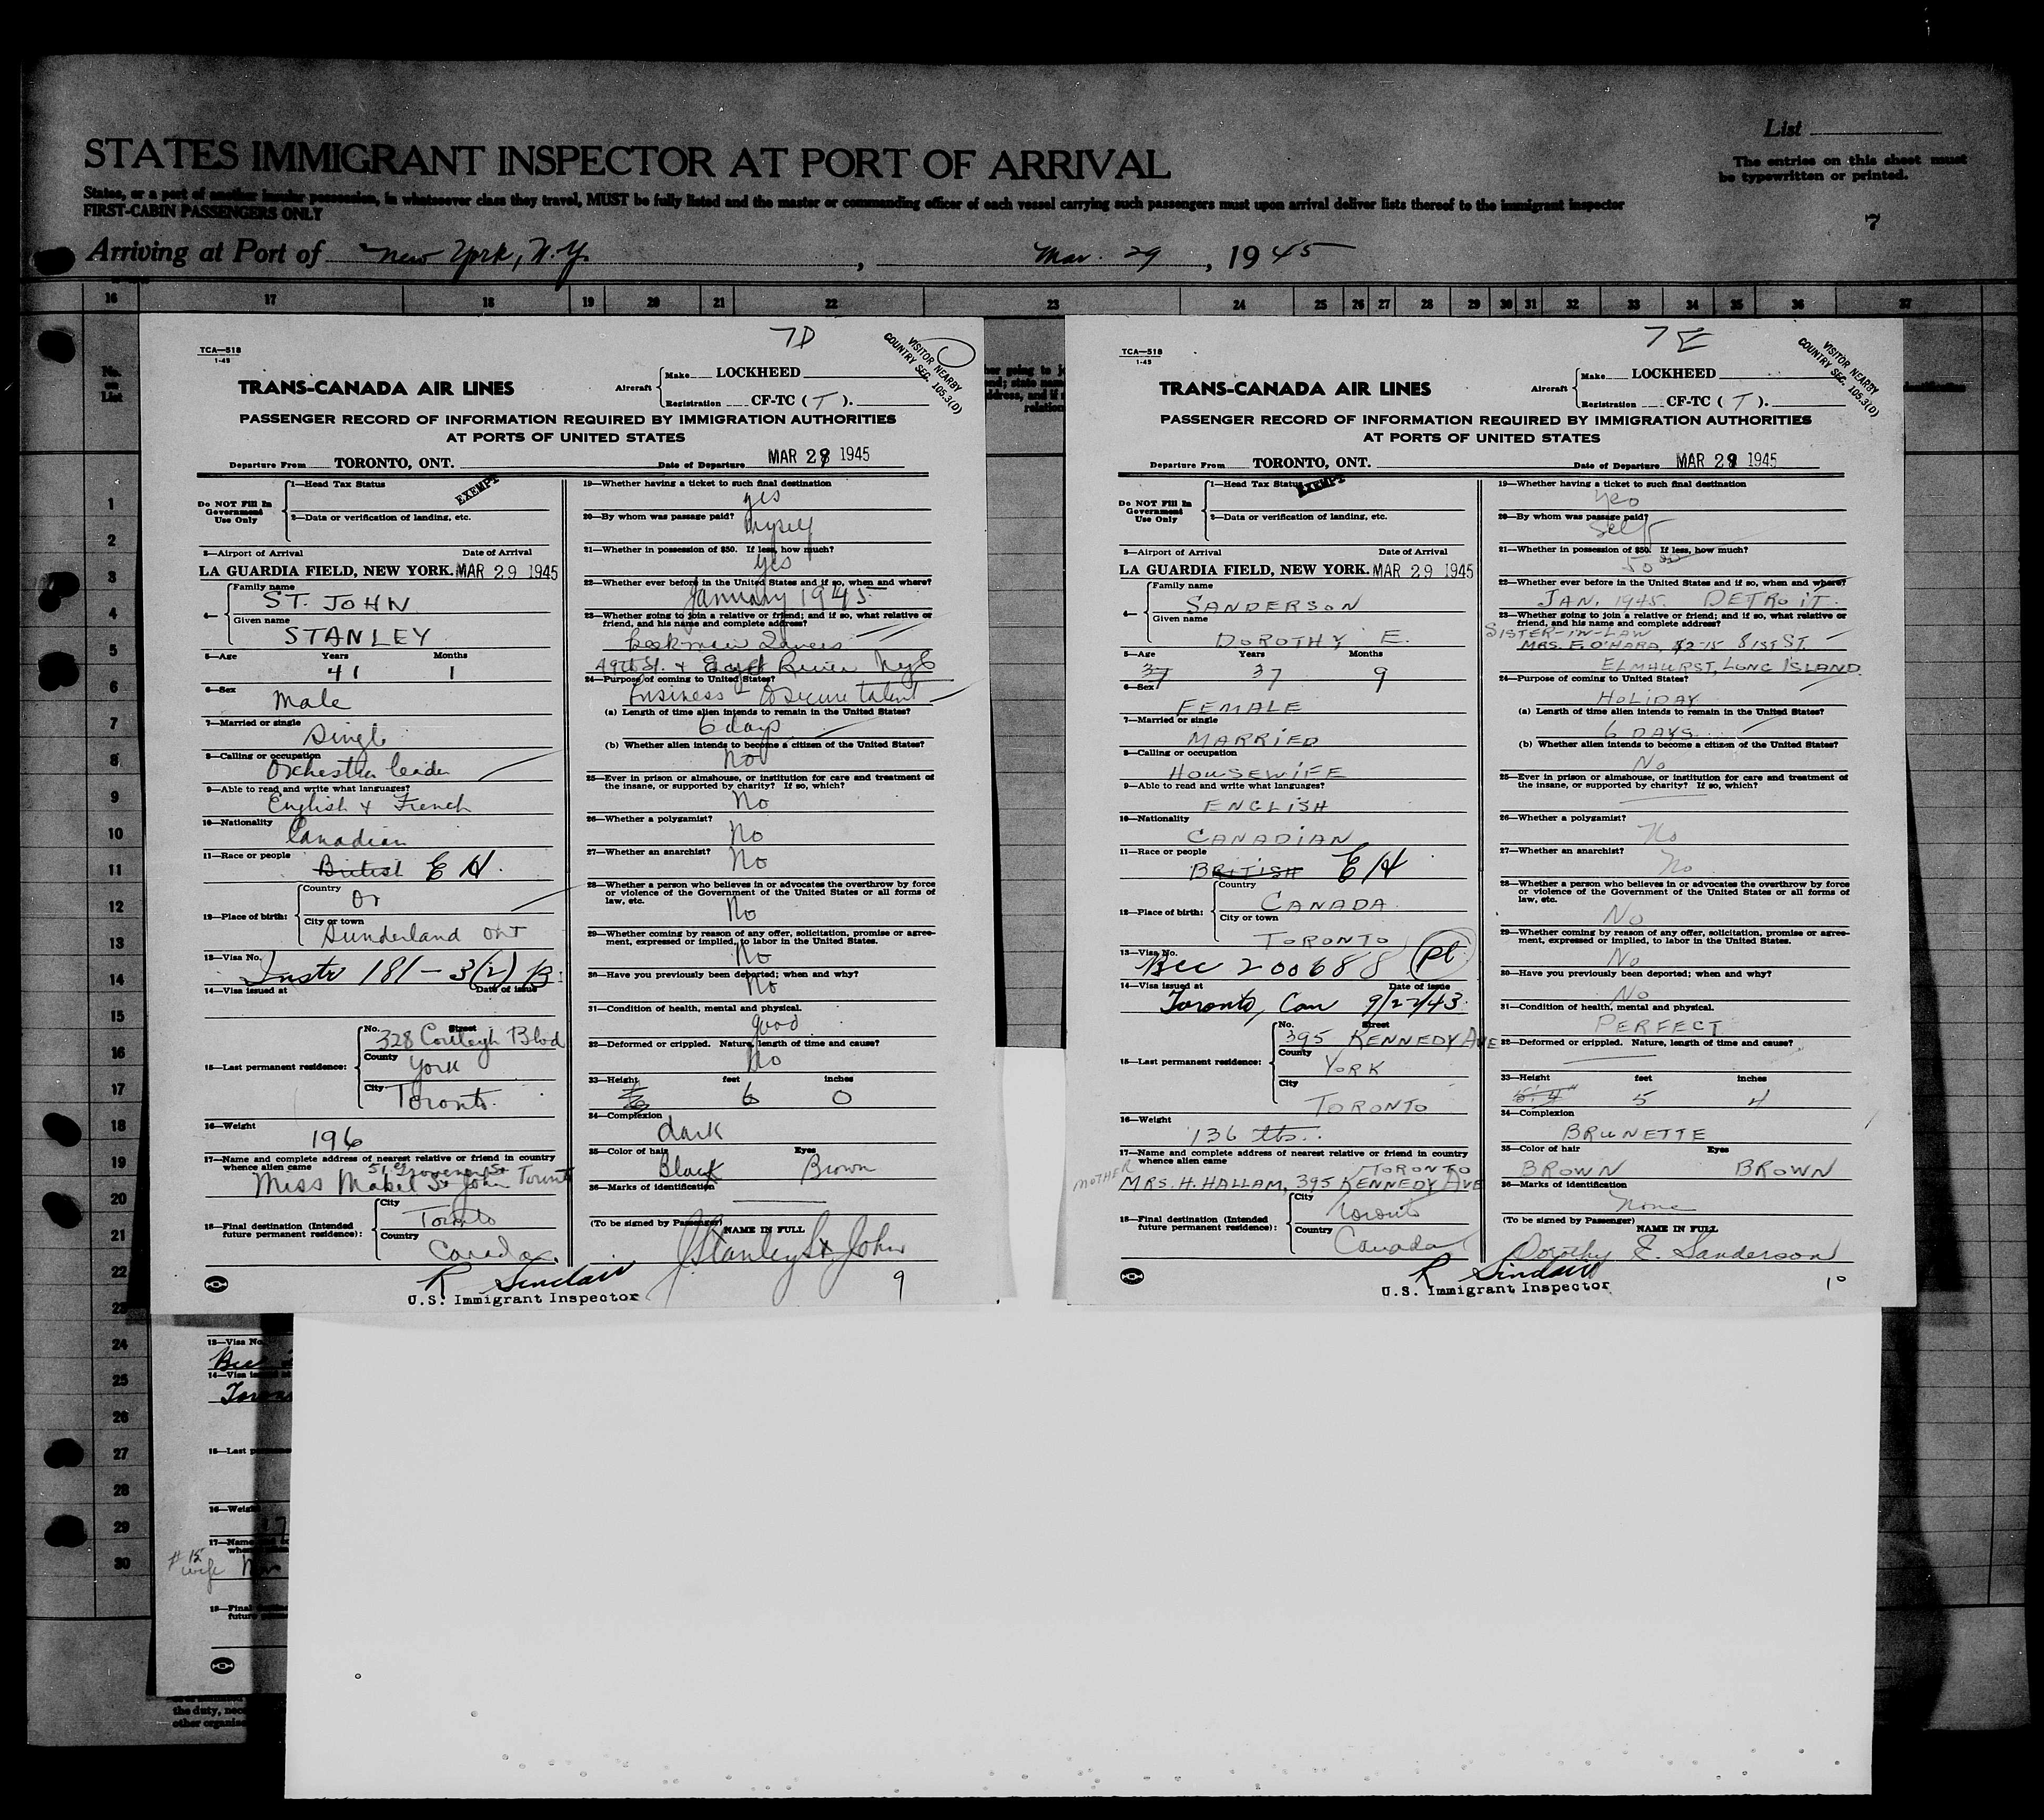 List
STATES IMMIGRANT INSPECTOR AT PORT OF ARRIVAL
The entries on this sheet must
be typewritten or printed.
States, or a part of another insular possession, in whatsoever class they travel, MUST be fully listed and the master or commanding officer of each vessel carrying such passengers must upon arrival deliver lists thereof to the immigrant inspector
FIRST-CABIN PASSENGERS ONLY
7
Arriving at Port of New York, N.Y. , Mar. 29 , 1945
16 17 18 19 20 21 22 23 24 25 26 27 28 29 30 31 32 33 34 35 36 37
No.
on
List
1
2
3
4
5
6
7
8
9
10
11
12
13
14
15
16
17
18
19
20
21
22
23
24
25
26
27
28
29
30
7D
TCA—518
1-45
VISITOR NEARBY
COUNTRY SEC. 105.3(D)
TRANS-CANADA AIR LINES
Aircraft
Make LOCKHEED
Registration CF-TC ( T ).
PASSENGER RECORD OF INFORMATION REQUIRED BY IMMIGRATION AUTHORITIES
AT PORTS OF UNITED STATES
Departure From TORONTO, ONT. Date of Departure MAR 29 1945
Do NOT Fill In
Government
Use Only
1—Head Tax Status EXEMPT
2—Data or verification of landing, etc.
3—Airport of Arrival Date of Arrival
LA GUARDIA FIELD, NEW YORK. MAR 29 1945
4— Family name
ST. JOHN
Given name
STANLEY
5—Age Years Months
41 1
6—Sex
Male
7—Married or single
Single
8—Calling or occupation
Orchestra leader
9—Able to read and write what languages?
English & French
10—Nationality
Canadian
11—Race or people
British E H.
12—Place of birth:
Country
Or
City or town
Sunderland Ont
13—Visa No.
Instr 181-3(2) B
14—Visa issued at Date of issue
15—Last permanent residence:
No. Street
328 Blvd
County
York
City
Toronto
16—Weight
196
17—Name and complete address of nearest relative or friend in country
whence alien came
51 Grosvenor St
Miss Mabel St John Toronto
18—Final destination (Intended
future permanent residence):
City
Toronto
Country
Canada
19—Whether having a ticket to such final destination
yes
20—By whom was passage paid?
myself
21—Whether in possession of $50. If less, how much?
yes
22—Whether ever before in the United States and if so, when and where?
January 1945
23—Whether going to join a relative or friend; and if so, what relative or
friend, and his name and complete address?
49th St. & East River NYC
24—Purpose of coming to United States?
business - secure talent
(a) Length of time alien intends to remain in the United States?
6 days
(b) Whether alien intends to become a citizen of the United States?
No
25—Ever in prison or almshouse, or institution for care and treatment of
the insane, or supported by charity? If so, which?
No
26—Whether a polygamist?
No
27—Whether an anarchist?
No
28—Whether a person who believes in or advocates the overthrow by force
or violence of the Government of the United States or all forms of
law, etc.
No
29—Whether coming by reason of any offer, solicitation, promise or agree-
ment, expressed or implied, to labor in the United States.
No
30—Have you previously been deported; when and why?
No
31—Condition of health, mental and physical.
good
32—Deformed or crippled. Nature, length of time and cause?
No
33—Height feet inches
6 0
34—Complexion
dark
35—Color of hair Eyes
Black Brown
36—Marks of identification
(To be signed by Passenger) NAME IN FULL
J Stanley St John
R Sinclair
U.S. Immigrant Inspector
9
7E
TCA—518
1-45
VISITOR NEARBY
COUNTRY SEC. 105.3(D)
TRANS-CANADA AIR LINES
Aircraft
Make LOCKHEED
Registration CF-TC ( T ).
PASSENGER RECORD OF INFORMATION REQUIRED BY IMMIGRATION AUTHORITIES
AT PORTS OF UNITED STATES
Departure From TORONTO, ONT. Date of Departure MAR 29 1945
Do NOT Fill In
Government
Use Only
1—Head Tax Status EXEMPT
2—Data or verification of landing, etc.
3—Airport of Arrival Date of Arrival
LA GUARDIA FIELD, NEW YORK. MAR 29 1945
4— Family name
SANDERSON
Given name
DOROTHY E.
5—Age Years Months
37 37 9
6—Sex
FEMALE
7—Married or single
MARRIED
8—Calling or occupation
HOUSEWIFE
9—Able to read and write what languages?
ENGLISH
10—Nationality
CANADIAN
11—Race or people
BRITISH E H
12—Place of birth:
Country
CANADA
City or town
TORONTO
13—Visa No.
Bcc 200688 Pl
14—Visa issued at Date of issue
Toronto, Can 9/22/43
15—Last permanent residence:
No. Street
395 KENNEDY AVE
County
YORK
City
TORONTO
16—Weight
136 lbs.
17—Name and complete address of nearest relative or friend in country
whence alien came
TORONTO
MOTHER MRS. H. HALLAM, 395 KENNEDY AVE
18—Final destination (Intended
future permanent residence):
City
Toronto
Country
Canada
19—Whether having a ticket to such final destination
Yes
20—By whom was passage paid?
Self
21—Whether in possession of $50. If less, how much?
50
22—Whether ever before in the United States and if so, when and where?
JAN. 1945. DETROIT.
23—Whether going to join a relative or friend; and if so, what relative or
friend, and his name and complete address?
SISTER-IN-LAW
MRS. F. O'HARA, 82-15 81ST ST.
ELMHURST, LONG ISLAND.
24—Purpose of coming to United States?
HOLIDAY
(a) Length of time alien intends to remain in the United States?
6 DAYS
(b) Whether alien intends to become a citizen of the United States?
No
25—Ever in prison or almshouse, or institution for care and treatment of
the insane, or supported by charity? If so, which?
26—Whether a polygamist?
No
27—Whether an anarchist?
No
28—Whether a person who believes in or advocates the overthrow by force
or violence of the Government of the United States or all forms of
law, etc.
No
29—Whether coming by reason of any offer, solicitation, promise or agree-
ment, expressed or implied, to labor in the United States.
No
30—Have you previously been deported; when and why?
No
31—Condition of health, mental and physical.
PERFECT
32—Deformed or crippled. Nature, length of time and cause?
33—Height feet inches
5'4" 5 4
34—Complexion
BRUNETTE
35—Color of hair Eyes
BROWN BROWN
36—Marks of identification
None
(To be signed by Passenger) NAME IN FULL
Dorothy E. Sanderson
R Sinclair
U.S. Immigrant Inspector
10
13—Visa No.
Bcc
14—Visa
15—Last
16—Weight
17—Name
# 15
wife
18—Final
future
the duty,
other